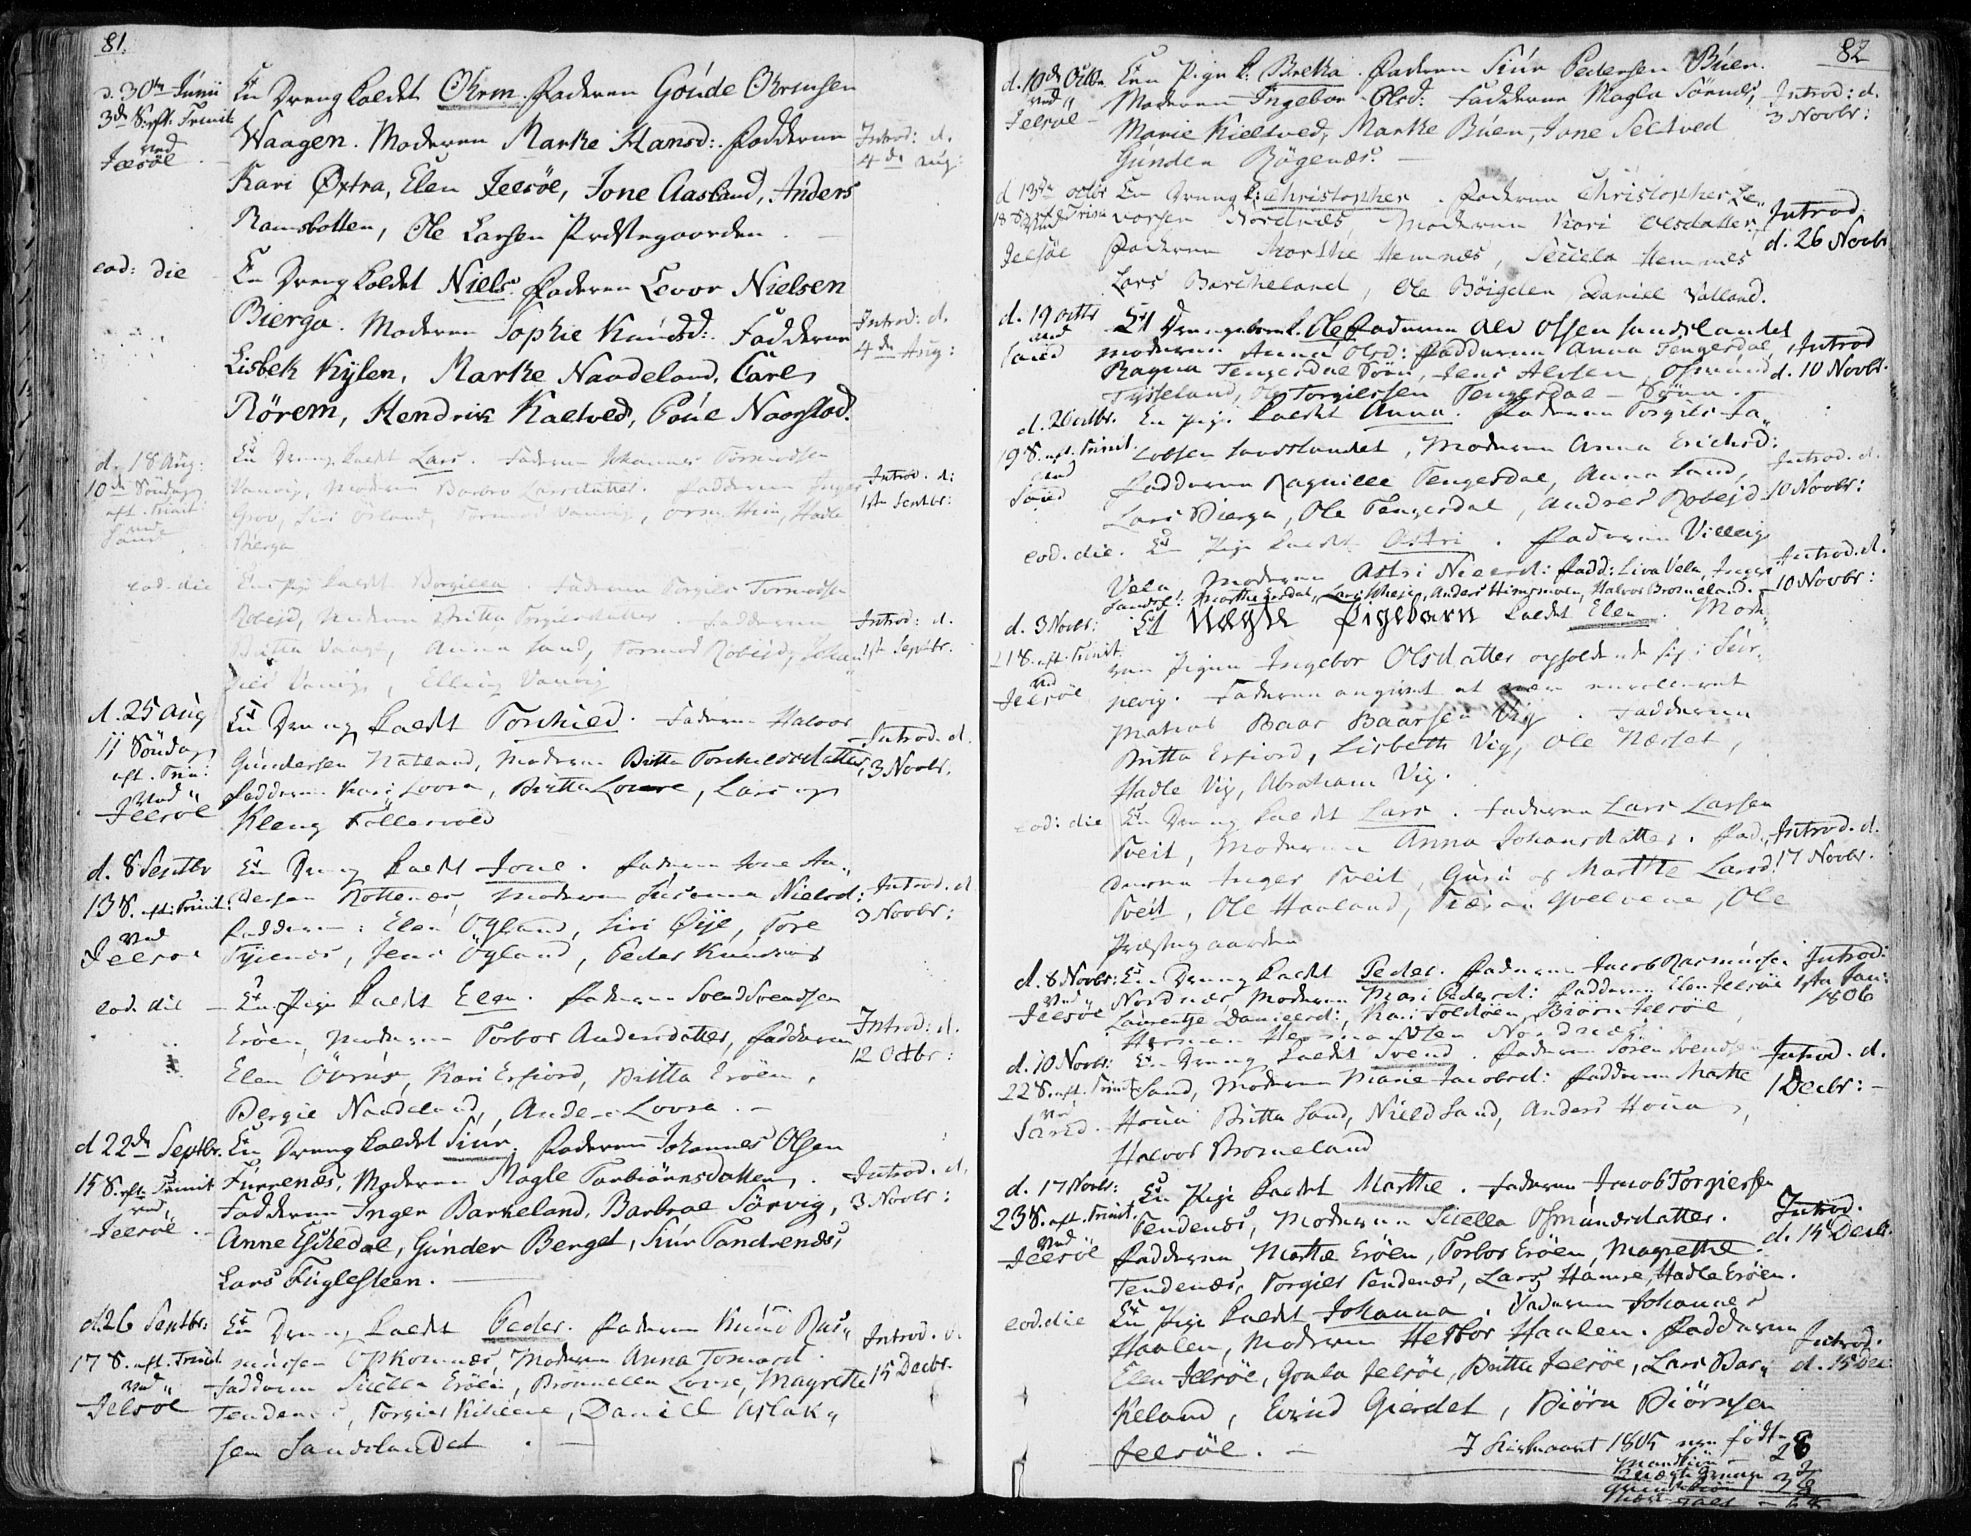 81.
d. 30te Junii
3de S. eft. Trinit.
ved
Jelsöe
En Dreng kaldet Ohrm. Faderen Gonde Ohrmsen
Waagen. Moderen Marke Hansd: Fadderne
Kari Øxtra, Elen Jelsöe, Jone Aasland, Anders
Ramsbotten, Ole Larsen Præstegaarden.
Introd: d.
4de Aug:
eod: die
En Dreng kaldet Niels. Faderen Levor Nielsen
Bierga. Moderen Sophie Knudsd: Fadderne
Lisbek Kylen, Marke Naadeland, Carl
Rörem, Hendrik Kaltved, Poul Nagstad.
Introd: d.
4de Aug:
d. 18 Aug:
10de Söndag
eft. Trinit.
Sand
En Dreng kaldt Lars. Faderen Johannes Tormodsen
Vanvig, Moderen Barbro Larsdatter. Fadderne Inger
Grov, Siri Ösland, Tormod Vanvig, Orm Hiim, Hadle
Bierga
Introd. d:
1ste Septbr:
eod. die
En Pige kaldt Borgilla. Faderen Torgils Tormodsen
Robejd, Moderen Britta Torgersdatter. Fadderne
Britta Vaage, Anna Sand, Tormod Robejd, Johan
Niels Vanvig, Elling Vanvig
Introd: d.
1ste Septbr.
d. 25 Aug
11 Söndag
eft. Trin:
Ved
Jelsöe
En Dreng kaldt Torkild. Faderen Halvor
Gundersen Natland, Moderen Britta Torkildsdatter,
Fadderne Kari Lovra, Britta Lovra, Lars og
Kleng Föllesvold
Introd. d.
3 Novbr.
d. 8 Septbr
13 S. eft: Trinit:
Ved
Jelsöe
En Dreng kaldt Jone. Faderen Jone An„
dersen Nottenæs, Moderen Susanna Nielsd:
Fadderne: Elen Ögland, Siri Øye, Tore
Tyienes, Jens Ögland, Peder Kundevig
Introd. d
3 Novbr:
eod. die
En Pige kaldt Elen. Faderen Svend Svendsen
Eröen, Moderen Torbor Andersdatter, Fadderne
Elen Övrus, Kari Erfiord, Britta Eröen,
Bergie Naadeland, Anders Lovra.
Introd: d.
12 Octbr:
d 22de Septbr.
15 S. eft. Trinit
ved
Jelsöe
En Dreng kaldet Siur. Faderen Johannes Olsen
Furrenæs, Moderen Magle Torbiörnsdatter.
Fadderne Inger Barkeland, Barbroe Sörvig,
Anne Eskedal, Gunder Berget, Siur Tandrenæs,
Lars Fuglesteen.
Introd. d.
3 Novbr:
d. 26 Septbr:
17 S. eft. Trinit
Ved
Jelsöe
En Dreng kaldt Peder. Faderen Knud Ras„
mussen Opkomnæs, Moderen Anna Tomasd.
Fadderne Sicella Eröen, Bronnella Lovra, Magrethe
Tendenes, Torgier Kihlene, Daniel Aslak„
sen Sandslandet
Introd. d.
15 Decbr.
82
d. 10de Octbr.
ved
Jelsöe
En Pige k: Bretha. Faderen Siur Pedersen Buen.
Moderen Ingebor Olsd: Fadderne Magla Sörnes,
Marie Kieltved, Marthe Buen, Jone Seltved
Gunder Bøgenæs.
Introd: d.
3 Novbr:
d 13de Octbr
18 S. eft Trin
Ved
Jelsöe
En Dreng k: Christopher. Faderen Christopher Le„
vorsen Nordnæs, Moderen Kari Olsdatter,
Fadderne Marthe Hemnæs, Sicella Hemnæs
Lars Barcheland, Ole Böigden, Daniel Valland.
Introd.
d. 26 Novbr
d. 19 Octbr
ved
Sand
Et Drengebarn k. Ole Faderen Ole Olsen Sandslandet
Moderen Anna Olsd: Fadderne Anna Tengesdal,
Ragna Tengesdal Sönn, Jens Alvsen, Osmund
Tysseland, Ole Torgiersen Tengesdal - Sönn.
Introd
d. 10 Novbr.
d. 20 Octbr.
19 S. eft. Trinit.
ved
Sand
En Pige kaldet Anna. Faderen Torgils Ja„
cobsen Sandslandet, Moderen Anna Erichsd:
Fadderne Ragnille Tengesdal, Anna Sand,
Lars Bierga, Ole Tengesdal, Anders Robejd
Introd. d.
10 Novbr:
eod. die.
En Pige kaldt Astri. Faderen Villeig
Vela, Moderen Astri Nielsd: Fadd: Liva Vela, Inger
Sandsl: Marthe Eisdal, Lars Eheje, Anders Himsmoen, Halvor Bromeland.
Introd. d.
10 Novbr:
d. 3 Novbr:
21 S. eft. Trinit
ved
Jelsöe
Et Uægte Pigebarn kaldet Elen. Mode„
ren Pigen Ingebor Olsdatter opholdende sig i Sör„
pevig. Faderen angivet at være enrolleret
Matros Baar Baarsen Vig. Fadderne
Britta Erfiord, Lisbeth Vig, Ole Næsset,
Hadle Vig, Abraham Vig.
eod: die
En Dreng kaldt Lars. Faderen Lars Larsen
Tveit, Moderen Anna Johansdatter. Fad„
derne Inger Tveit, Guri og Marthe Larsd:
Tveit, Ole Haaland, Tiærian Qvelvene, Ole
Præstegaarden
Introd. d.
17 Novbr.
d. 8 Novbr:
Ved
Jelsöe
En Dreng kaldt Peder. Faderen Jacob Rasmussen
Nordnæs, Moderen Mari Pedersd: Fadderne Elen Jelsöe
Laurentje Danielsd:, Kari Foldöen, Biörn Jelsöe,
Herman Hermandsen Nordnæs
Introd:
1ste Jan:
1806
d. 10 Novbr:
22 S. eft. Trinit
ved
Sand.
En Dreng kaldt Svend. Faderen Sören Svendsen
Sand, Moderen Marie Jacobsd: Fadderne Marthe
Houa, Britta Sand, Niels Sand, Anders Houa,
Halvor Bromeland
Introd. d.
1 Decbr:
d. 17 Novbr:
23 S. eft. Trinit.
Ved
Jelsöe
En Pige kaldt Marthe. Faderen Jacob Torgiersen
Tendenæs, Moderen Sicella Osmundsdatter.
Fadderne Marthe Eröen, Torbor Eröen, Magrethe
Tendenæs, Torgier Tendenæs, Lars Hamre, Hadle Eröen.
Introd.
d. 15 Decb.
eod. die
En Pige kaldt Johanna. Faderen Johannes
Haalen, Moderen Herbor Haalen. Fadderne
Elen Jelsöe, Gonla Jelsöe, Britta Jelsöe, Lars Bar„
keland, Evind Gierdet, Biörn Biörnsen
Jelsöe.
Introd.
d. 15 Dec:
I Kirkeaaret 1805 ere födte
Mandkiön 28